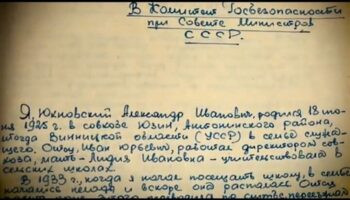 В Комитет Госбезопасности
при Совете Министров
СССР.
Я, Юхновский Александр Иванович, родился 18 ию
ня 1925 г. в совхозе Юзин, Антонинского района,
тогда Винницкой области (УССР) в семье служа-
щего. Отец, Иван Юрьевич, работал директором сов-
хоза, мать - Лидия Ивановна - учительствовала в
сельских школах.
В 1933 г., когда я начал посещать школу, в семье
начались нелады и вскоре она распалась. Отец